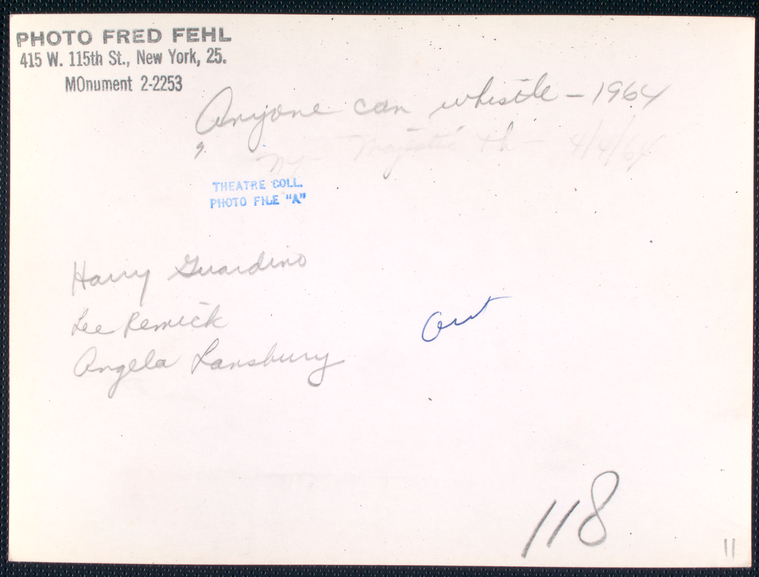 PHOTO FRED FEHL
415 W. 115th St., New York, 25.
MOnument 2-2253
Anyone can whistle - 1964
Majestic Th - 4/4/64
THEATRE COLL.
PHOTO FILE "A"
Harry Guardino
Lee Remick
Angela Lansbury
Out
118
11